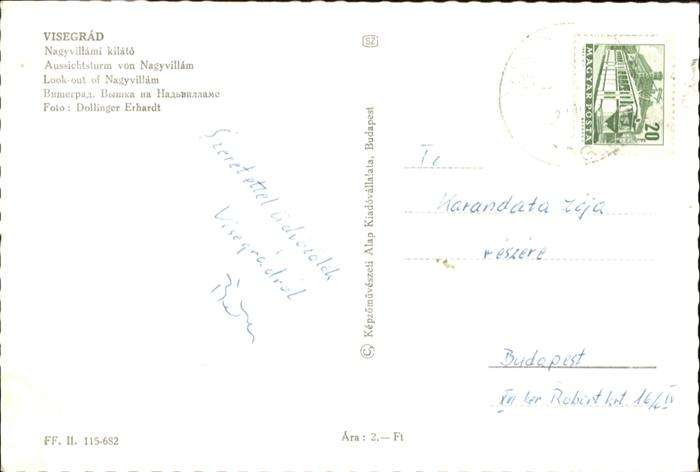 VISEGRÁD
Nagyvillámi kilátó
Aussichtsturm von Nagyvillám
Look-out of Nagyvillám
Вишеград. Вышка на Надьвилламе
Foto: Dollinger Erhardt
Szeretettel üdvözölek
Visegrádról
SZ
© Képzőművészeti Alap Kiadóvállalata, Budapest
MAGYAR POSTA
20 f
Karandata
részére
Budapest
Robert krt. 16/
FF. II. 115-682
Ára: 2.— Ft